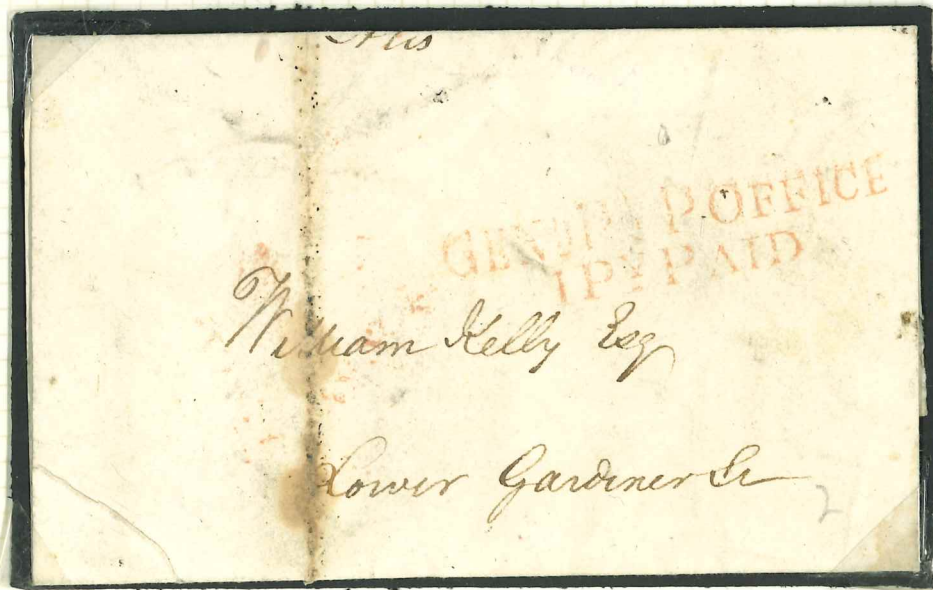 GENL P P OFFICE
1 PY PAID
William Kelly Esq
Lower Gardiner St
2